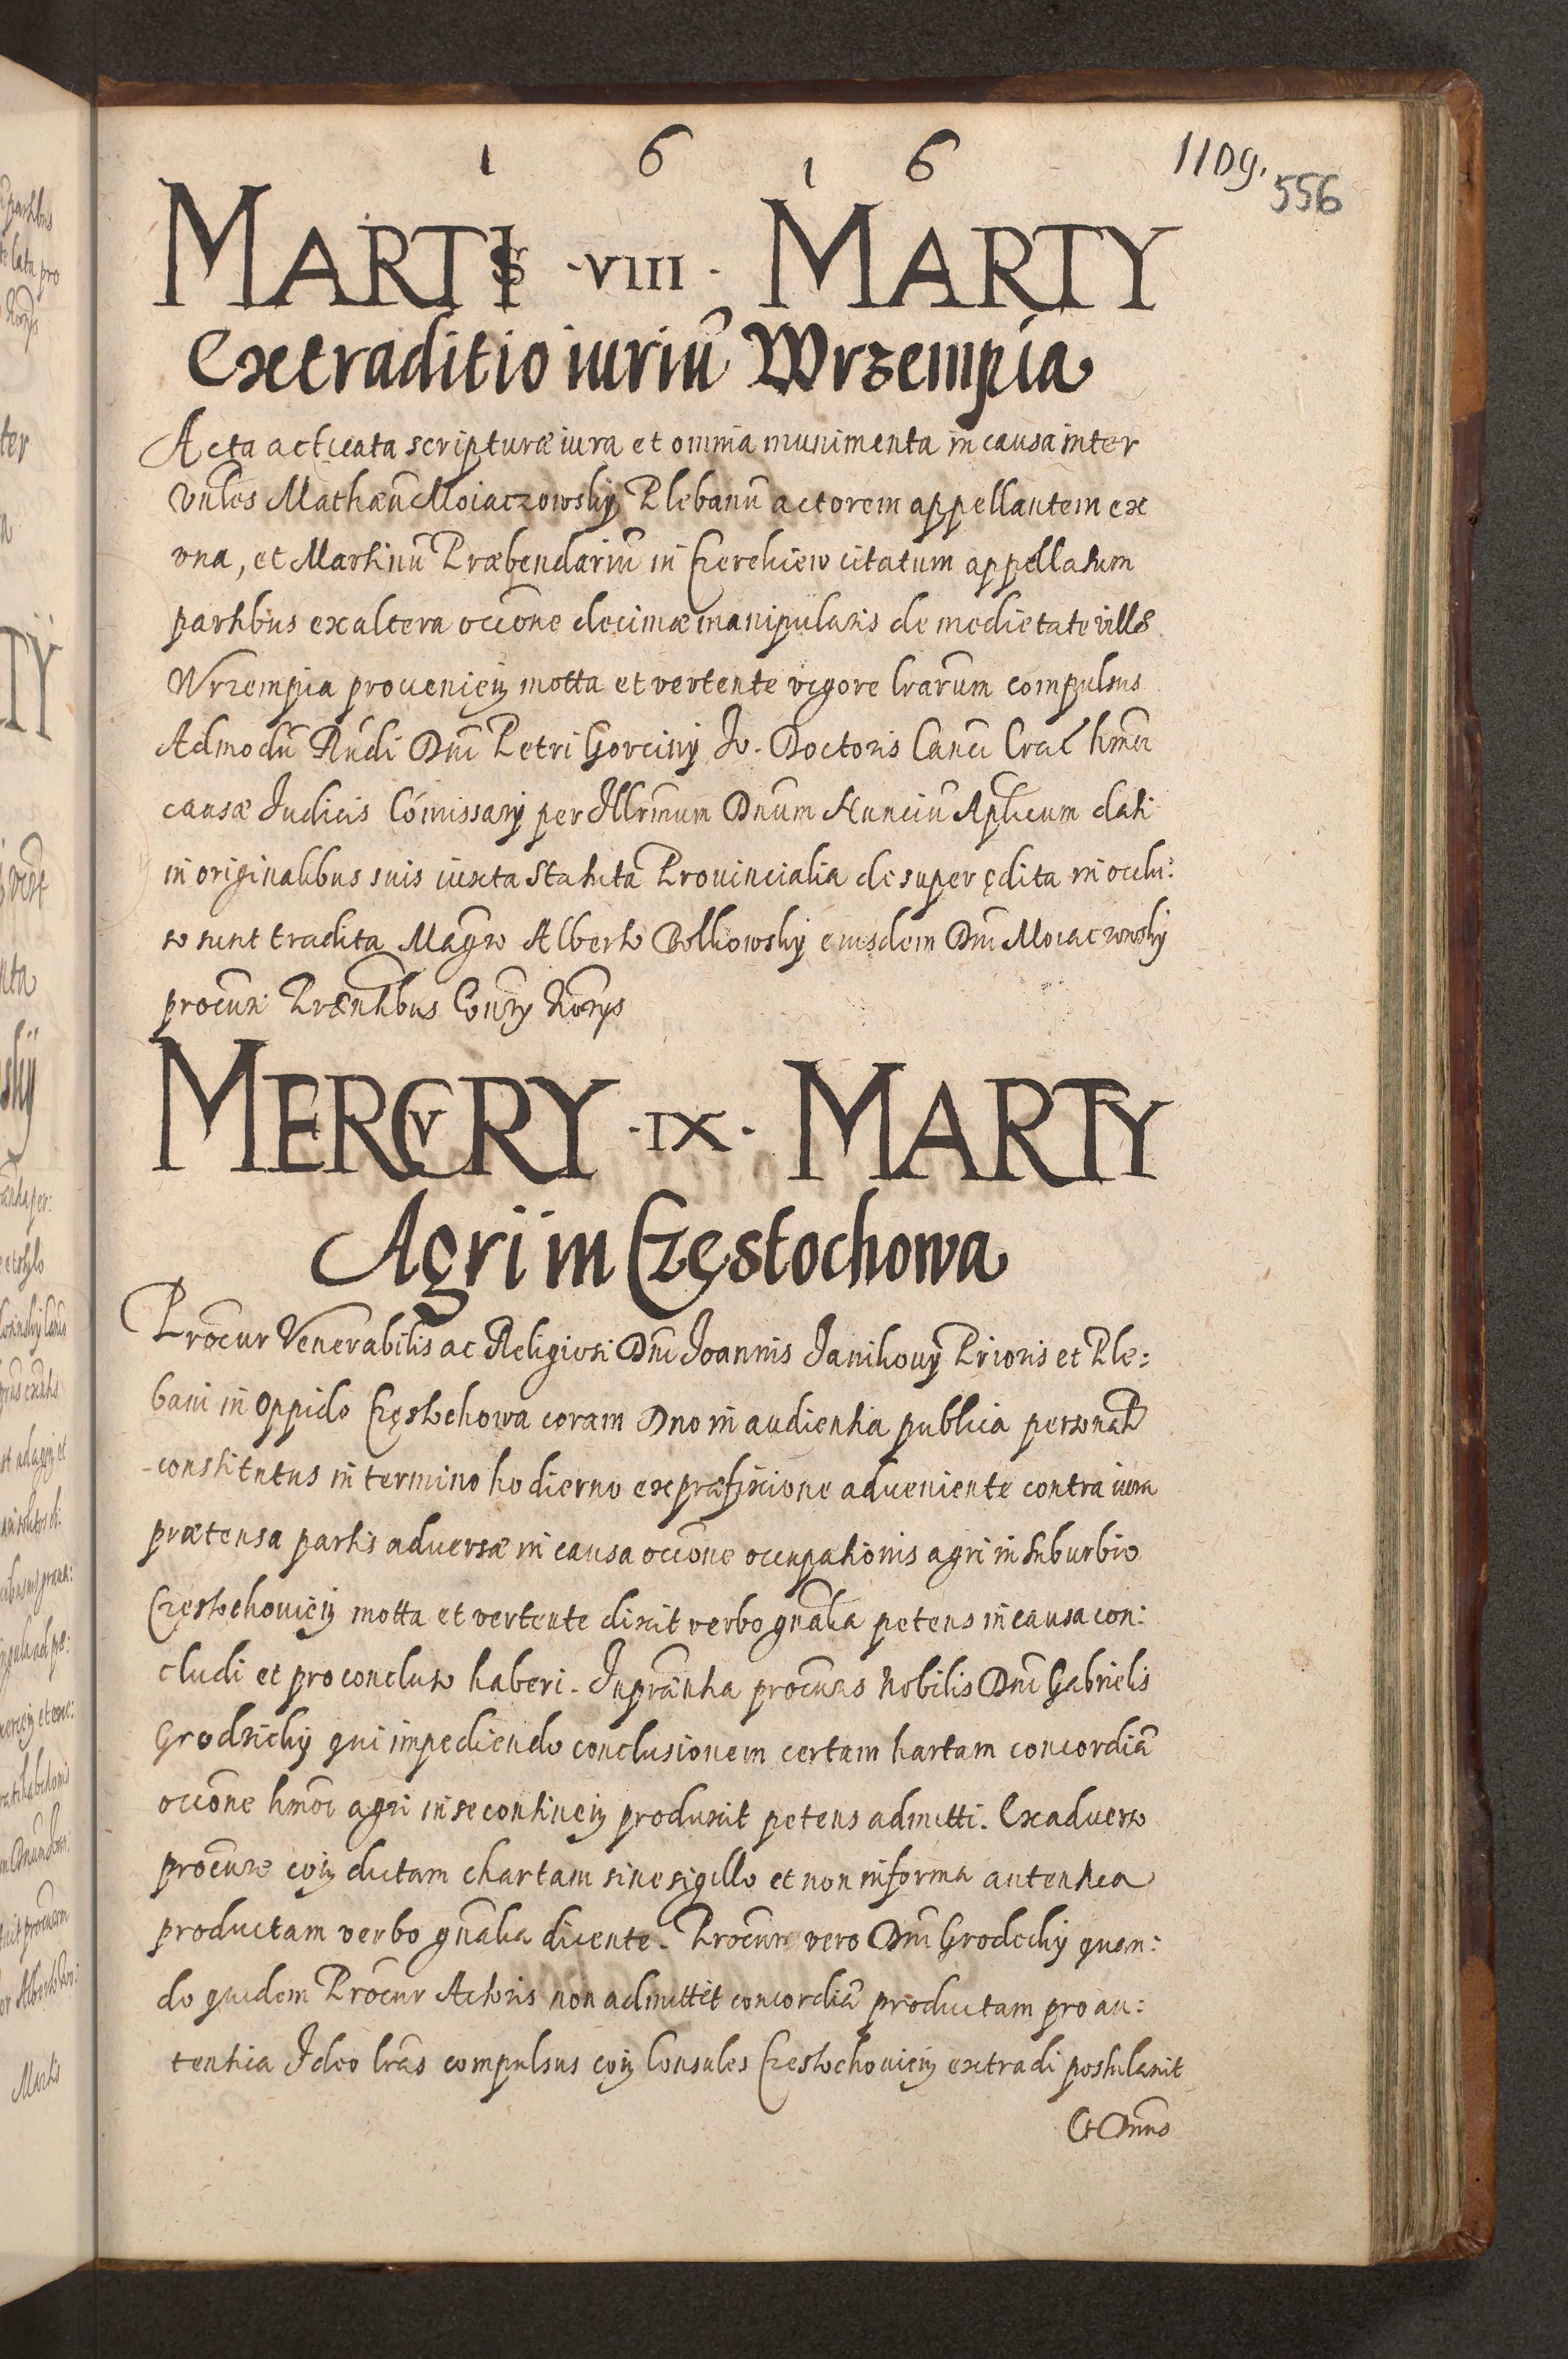 1 6 1 6
1109.
556
MARTIS ·VIII· MARTY
Extraditio iuriu̅ Wrzempia
Acta acticata scripturæ iura et omnia munimenta in causa inter
Vn̅les Mathæu̅ Moiaczowskij Plebanu̅ actorem appellantem ex
vna, et Martinu̅ Præbendariu̅ in citatum appellatum
partibus ex altera occ̅one decimæ manipularis de medietate villæ
Wrzempia prouenien̅ motta et vertente vigore lr̅arum compulsus
Admodu̅ Rn̅di Dn̅i Petri Gorcinij Iv. Doctoris Can̅ci Crac̅ hm̅oi
causæ Iudicis Co̅missarij per Illrm̅um Dn̅um Nunciu̅ Aplicum dati
in originalibus suis iuxta Statuta Prouincialia desuper ędita in occlu:
so sunt tradita Magro Alberto Bolkowskij eiusdem Dn̅i Moiaczowskij
procuri Præntibus Con̅ry Norys
MERCVRY ·IX· MARTY
Agri in Częstochowa
Procur Venerabilis ac Religiosi Dn̅i Joannis Janikouij Prioris et Ple:
bani in Oppido Częstochowa coram Dno in audientia publica personal̅r
constitutus in termino hodierno ex præfixione adueniente contra iura
prætensa partis aduersæ in causa occ̅one occupationis agri in suburbio
Częstochouien̅ motta et vertente dixit verbo gn̅alia petens in causa con:
cludi et pro concluso haberi. In præntia procuris Nobilis Dn̅i Gabrielis
Grodzickij qui impediendo conclusionem certam hartam concordia̅
occ̅one hm̅oi agri in se continen̅ produxit petens admitti. Ex aduerso
procure con̅ dictam chartam sine sigillo et non in forma autentica
productam verbo gn̅alia dicente. Procur vero Dn̅i Grodeckij quan:
do quidem Procur Actoris non admittit concordia̅ productam pro au:
tentica Ideo lr̅as compulsus con̅ Consules Częstochouien̅ extradi postulauit
Et Dn̅us